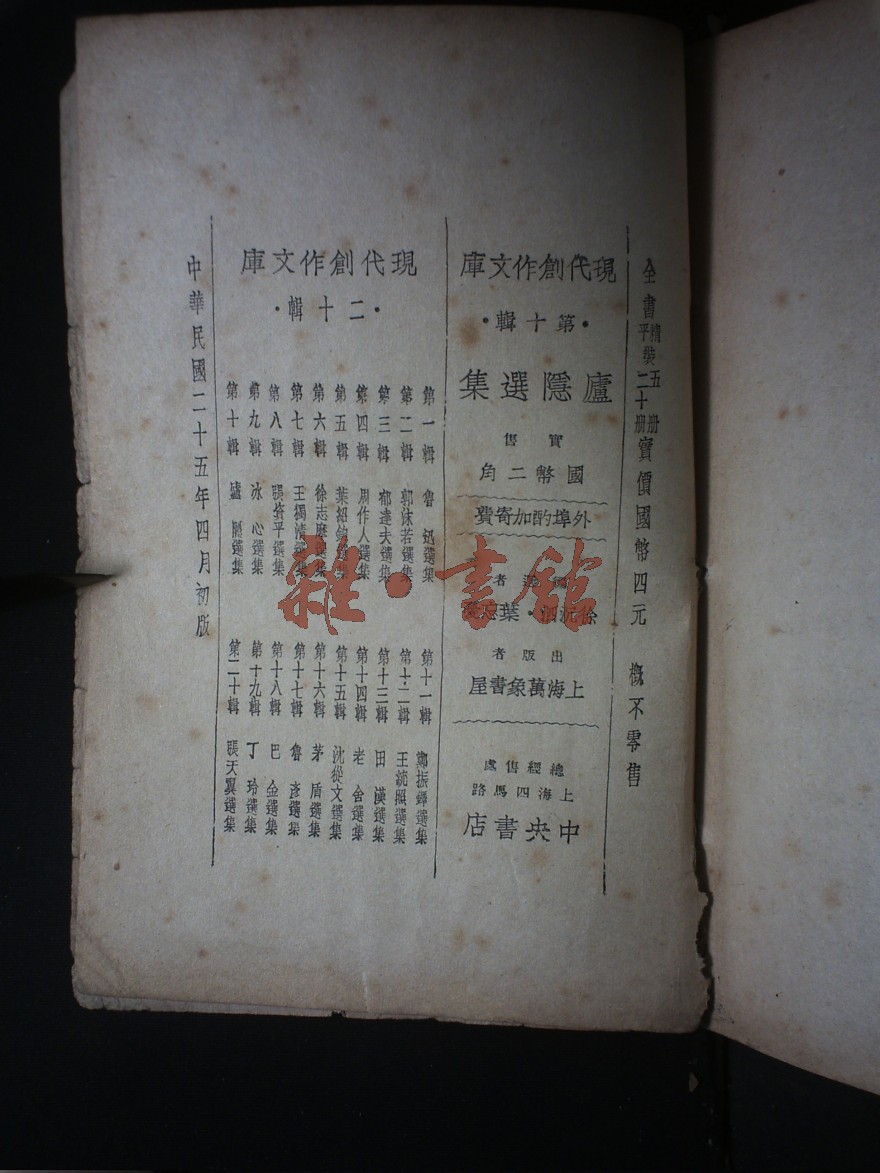 全書精裝五册平裝二十册實價國幣四元 概不零售
現代創作文庫
·第十輯·
廬隱選集
實售
國幣二角
外埠酌加寄費
編選者
徐沉泗·葉忘憂
出版者
上海萬象書屋
總經售處
上海四馬路
中央書店
現代創作文庫
·二十輯·
第一輯 魯迅選集
第二輯 郭沫若選集
第三輯 郁達夫選集
第四輯 周作人選集
第五輯 葉紹鈞選集
第六輯 徐志摩選集
第七輯 王獨清選集
第八輯 張資平選集
第九輯 冰心選集
第十輯 廬隱選集
第十一輯 鄭振鐸選集
第十二輯 王統照選集
第十三輯 田漢選集
第十四輯 老舍選集
第十五輯 沈從文選集
第十六輯 茅盾選集
第十七輯 魯彥選集
第十八輯 巴金選集
第十九輯 丁玲選集
第二十輯 張天翼選集
中華民國二十五年四月初版
雜·書館